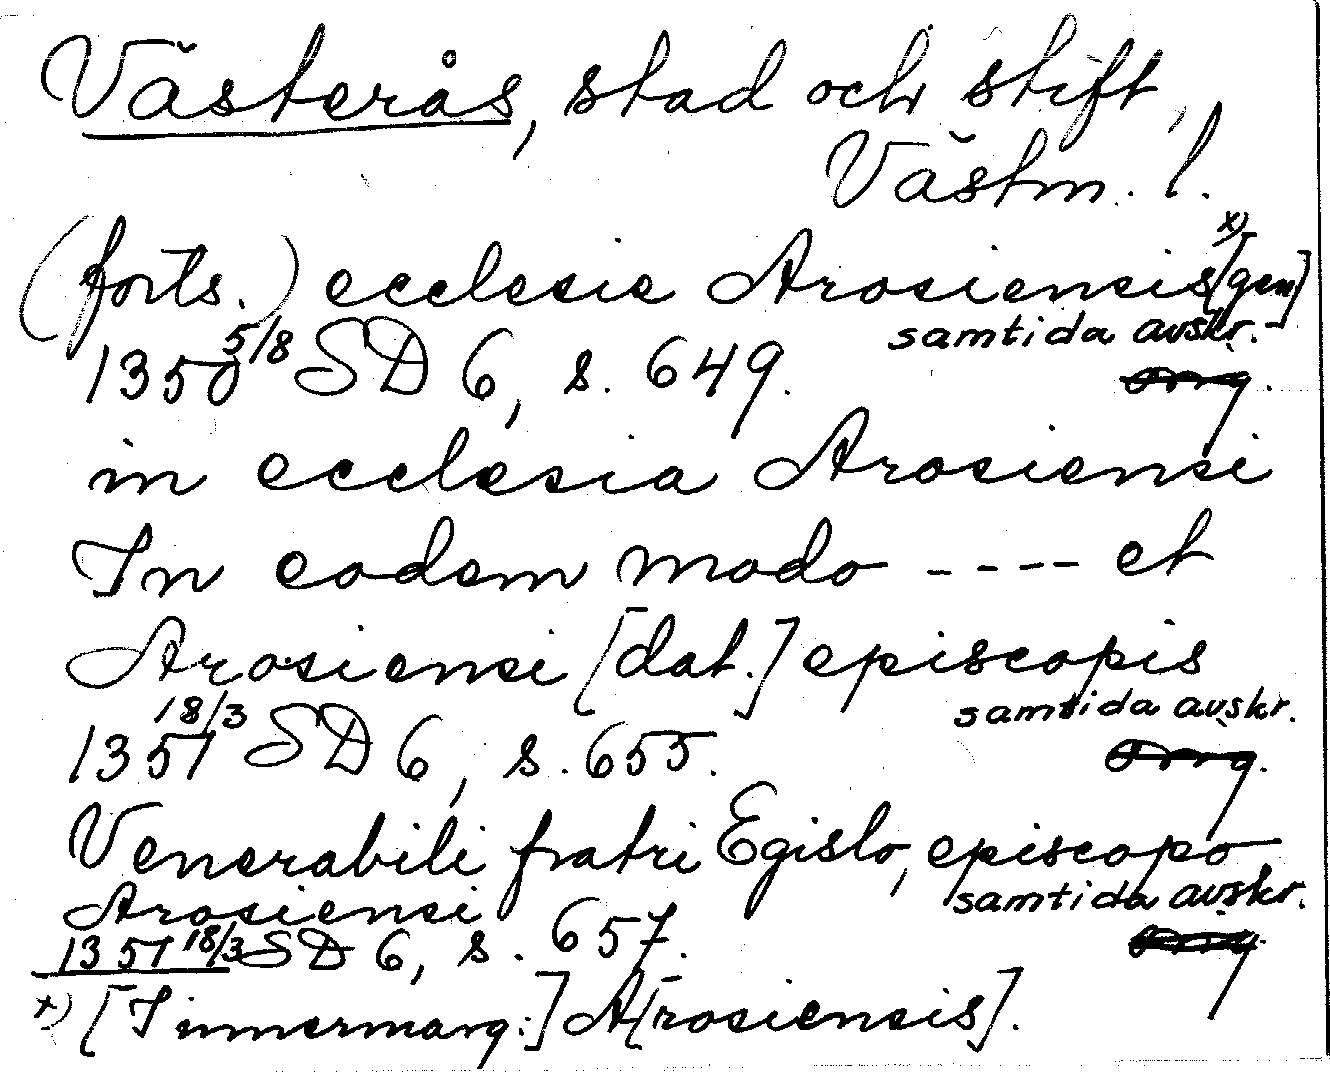 Västerås, stad och stift,
Västm. l.
(forts.) ecclesie Arosiensis x) [gen]
1350 5/8 SD 6, s. 649. samtida avskr. orig.
in ecclesia Arosiensi
In eodem modo ---- et
Arosiensi [dat.] episcopis
1351 18/3 SD 6, s. 655. samtida avskr. orig.
Venerabili fratri Egislo, episcopo
Arosiensi samtida avskr.
1351 18/3 SD 6, s. 657. orig.
x) [I innermarg:] A[rosiensis].